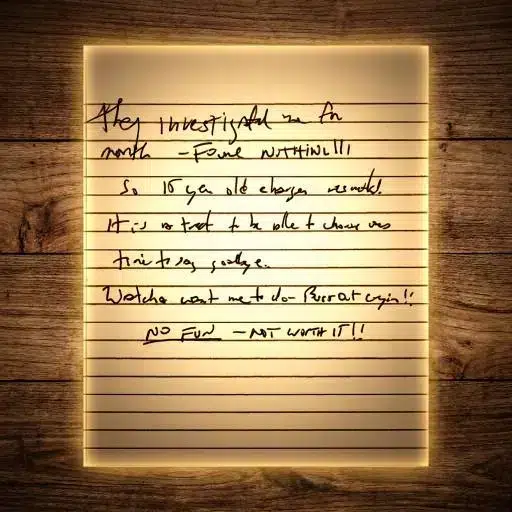 They investigated me for
month – Found NOTHING!!!
So year old charges resulted.
It is a treat to be able to choose ones
time to say goodbye.
Watcha want me to do – Burst out cryin!!
NO FUN – NOT WORTH IT!!